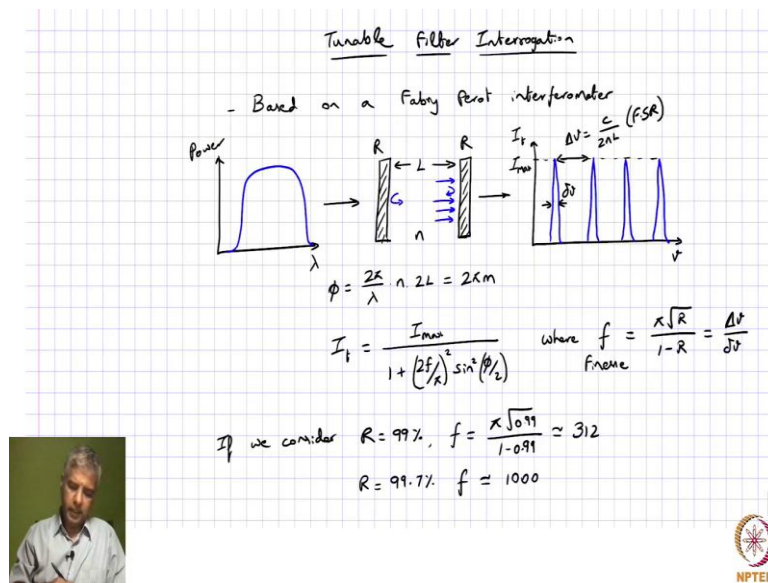 Tunable Filter Interrogation
- Based on a Fabry Perot interferometer
Power
λ
R ← L → R
n
I_t
I_max
Δν = c/2nL (FSR)
δν
ν
φ = 2π/λ · n · 2L = 2πm
I_t = I_max / (1 + (2f/π)² sin²(φ/2)) where f = π√R / (1-R) = Δν/δν
Finesse
If we consider R = 99%, f = π√0.99 / (1-0.99) ≃ 312
R = 99.7% f ≃ 1000
NPTEL